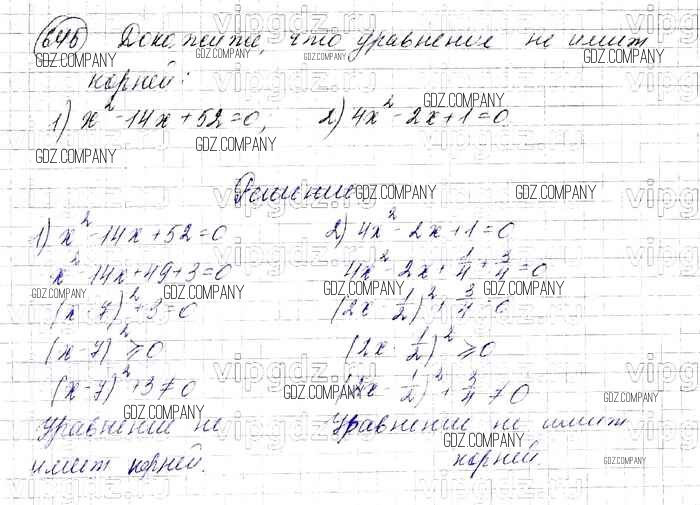 645 Докажите, что уравнение не имеет
корней:
1) x² - 14x + 52 = 0; 2) 4x² - 2x + 1 = 0
Решение
1) x² - 14x + 52 = 0
x² - 14x + 49 + 3 = 0
(x - 7)² + 3 = 0
(x - 7)² ⩾ 0
(x - 7)² + 3 ≠ 0
Уравнение не
имеет корней.
2) 4x² - 2x + 1 = 0
4x² - 2x + 1/4 + 3/4 = 0
(2x - 1/2)² + 3/4 = 0
(2x - 1/2)² ⩾ 0
(2x - 1/2)² + 3/4 ≠ 0
Уравнение не имеет
корней.
GDZ.COMPANY
vipgdz.ru